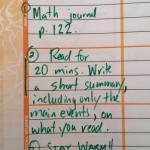 ① Math journal
p. 122.
② Read for
20 mins. Write
a short summary,
including only the
main events, on
what you read.
Stay Warm!!